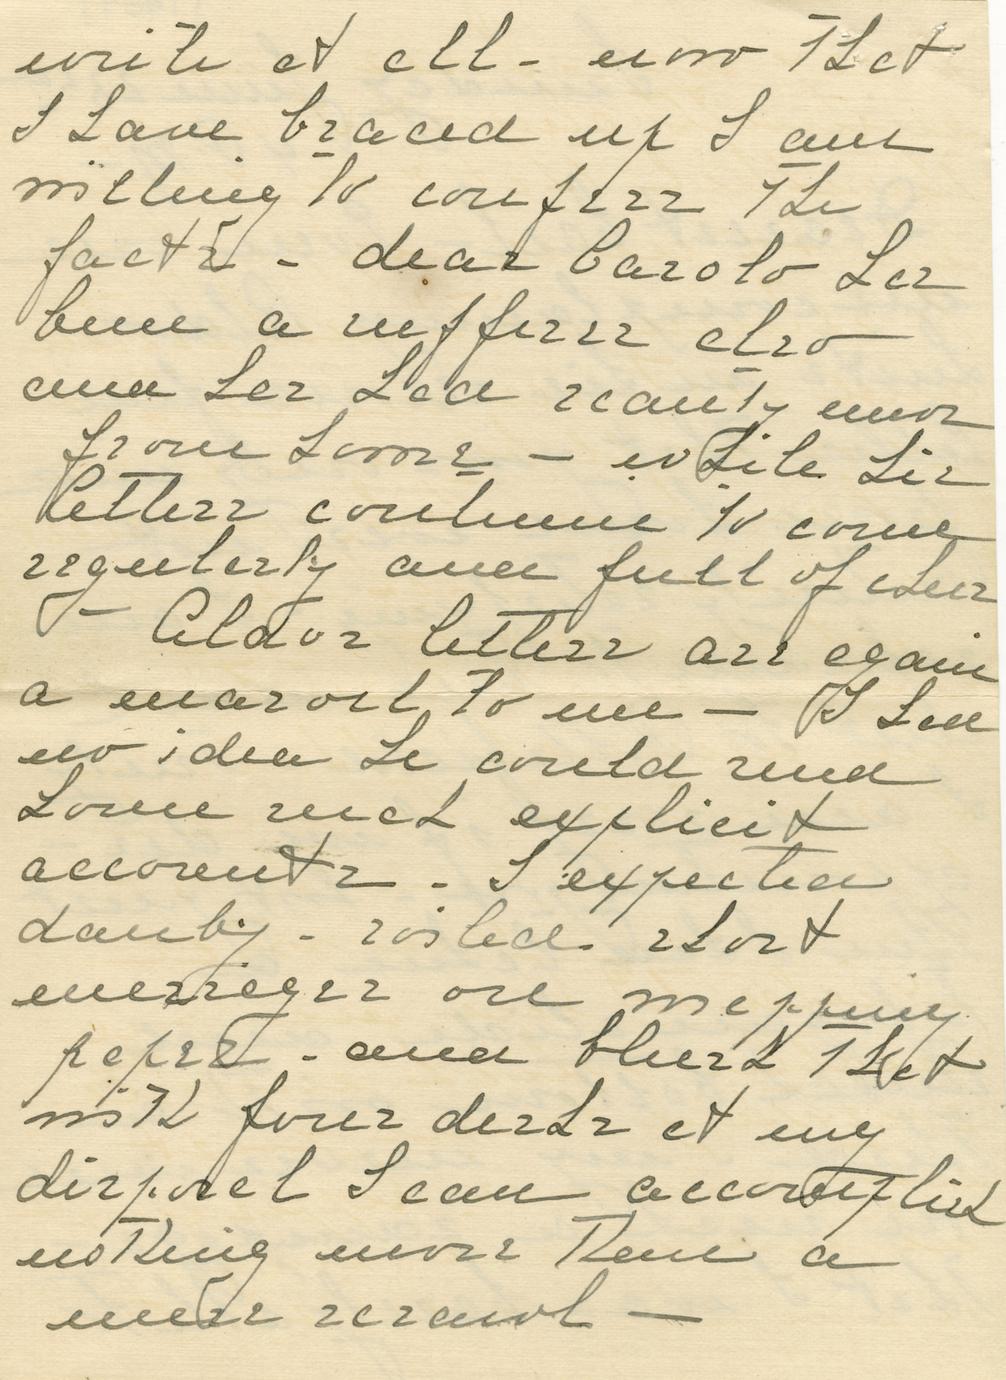 write at all - now that
I have braced up I am
willing to confess the
facts - dear Carolo has
been a sufferer also
and has had scanty news
from home - while his
letters continue to come
regularly and full of cheer
- Aldo's letters are again
a marvel to me - I had
no idea he could send
home such explicit
accounts - I expected
dauby - soiled - short
messages on wrapping
paper - and blush that
with four desks at my
disposal I can accomplish
nothing more than a
mere scrawl -